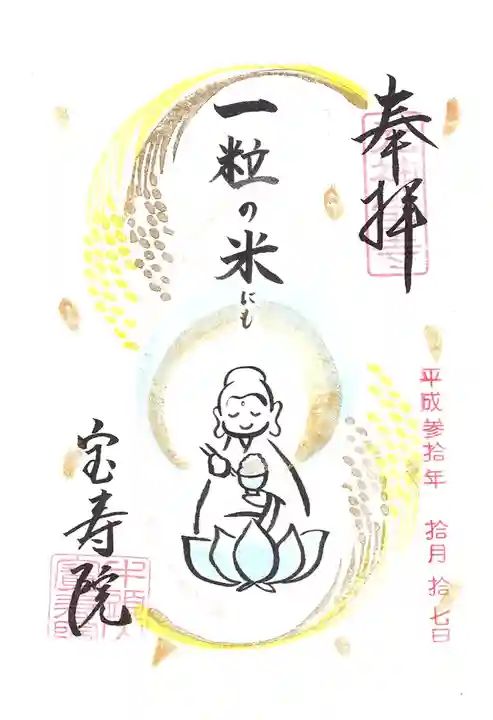 奉拝
一粒の米にも
平成参拾年 拾月拾七日
宝寿院